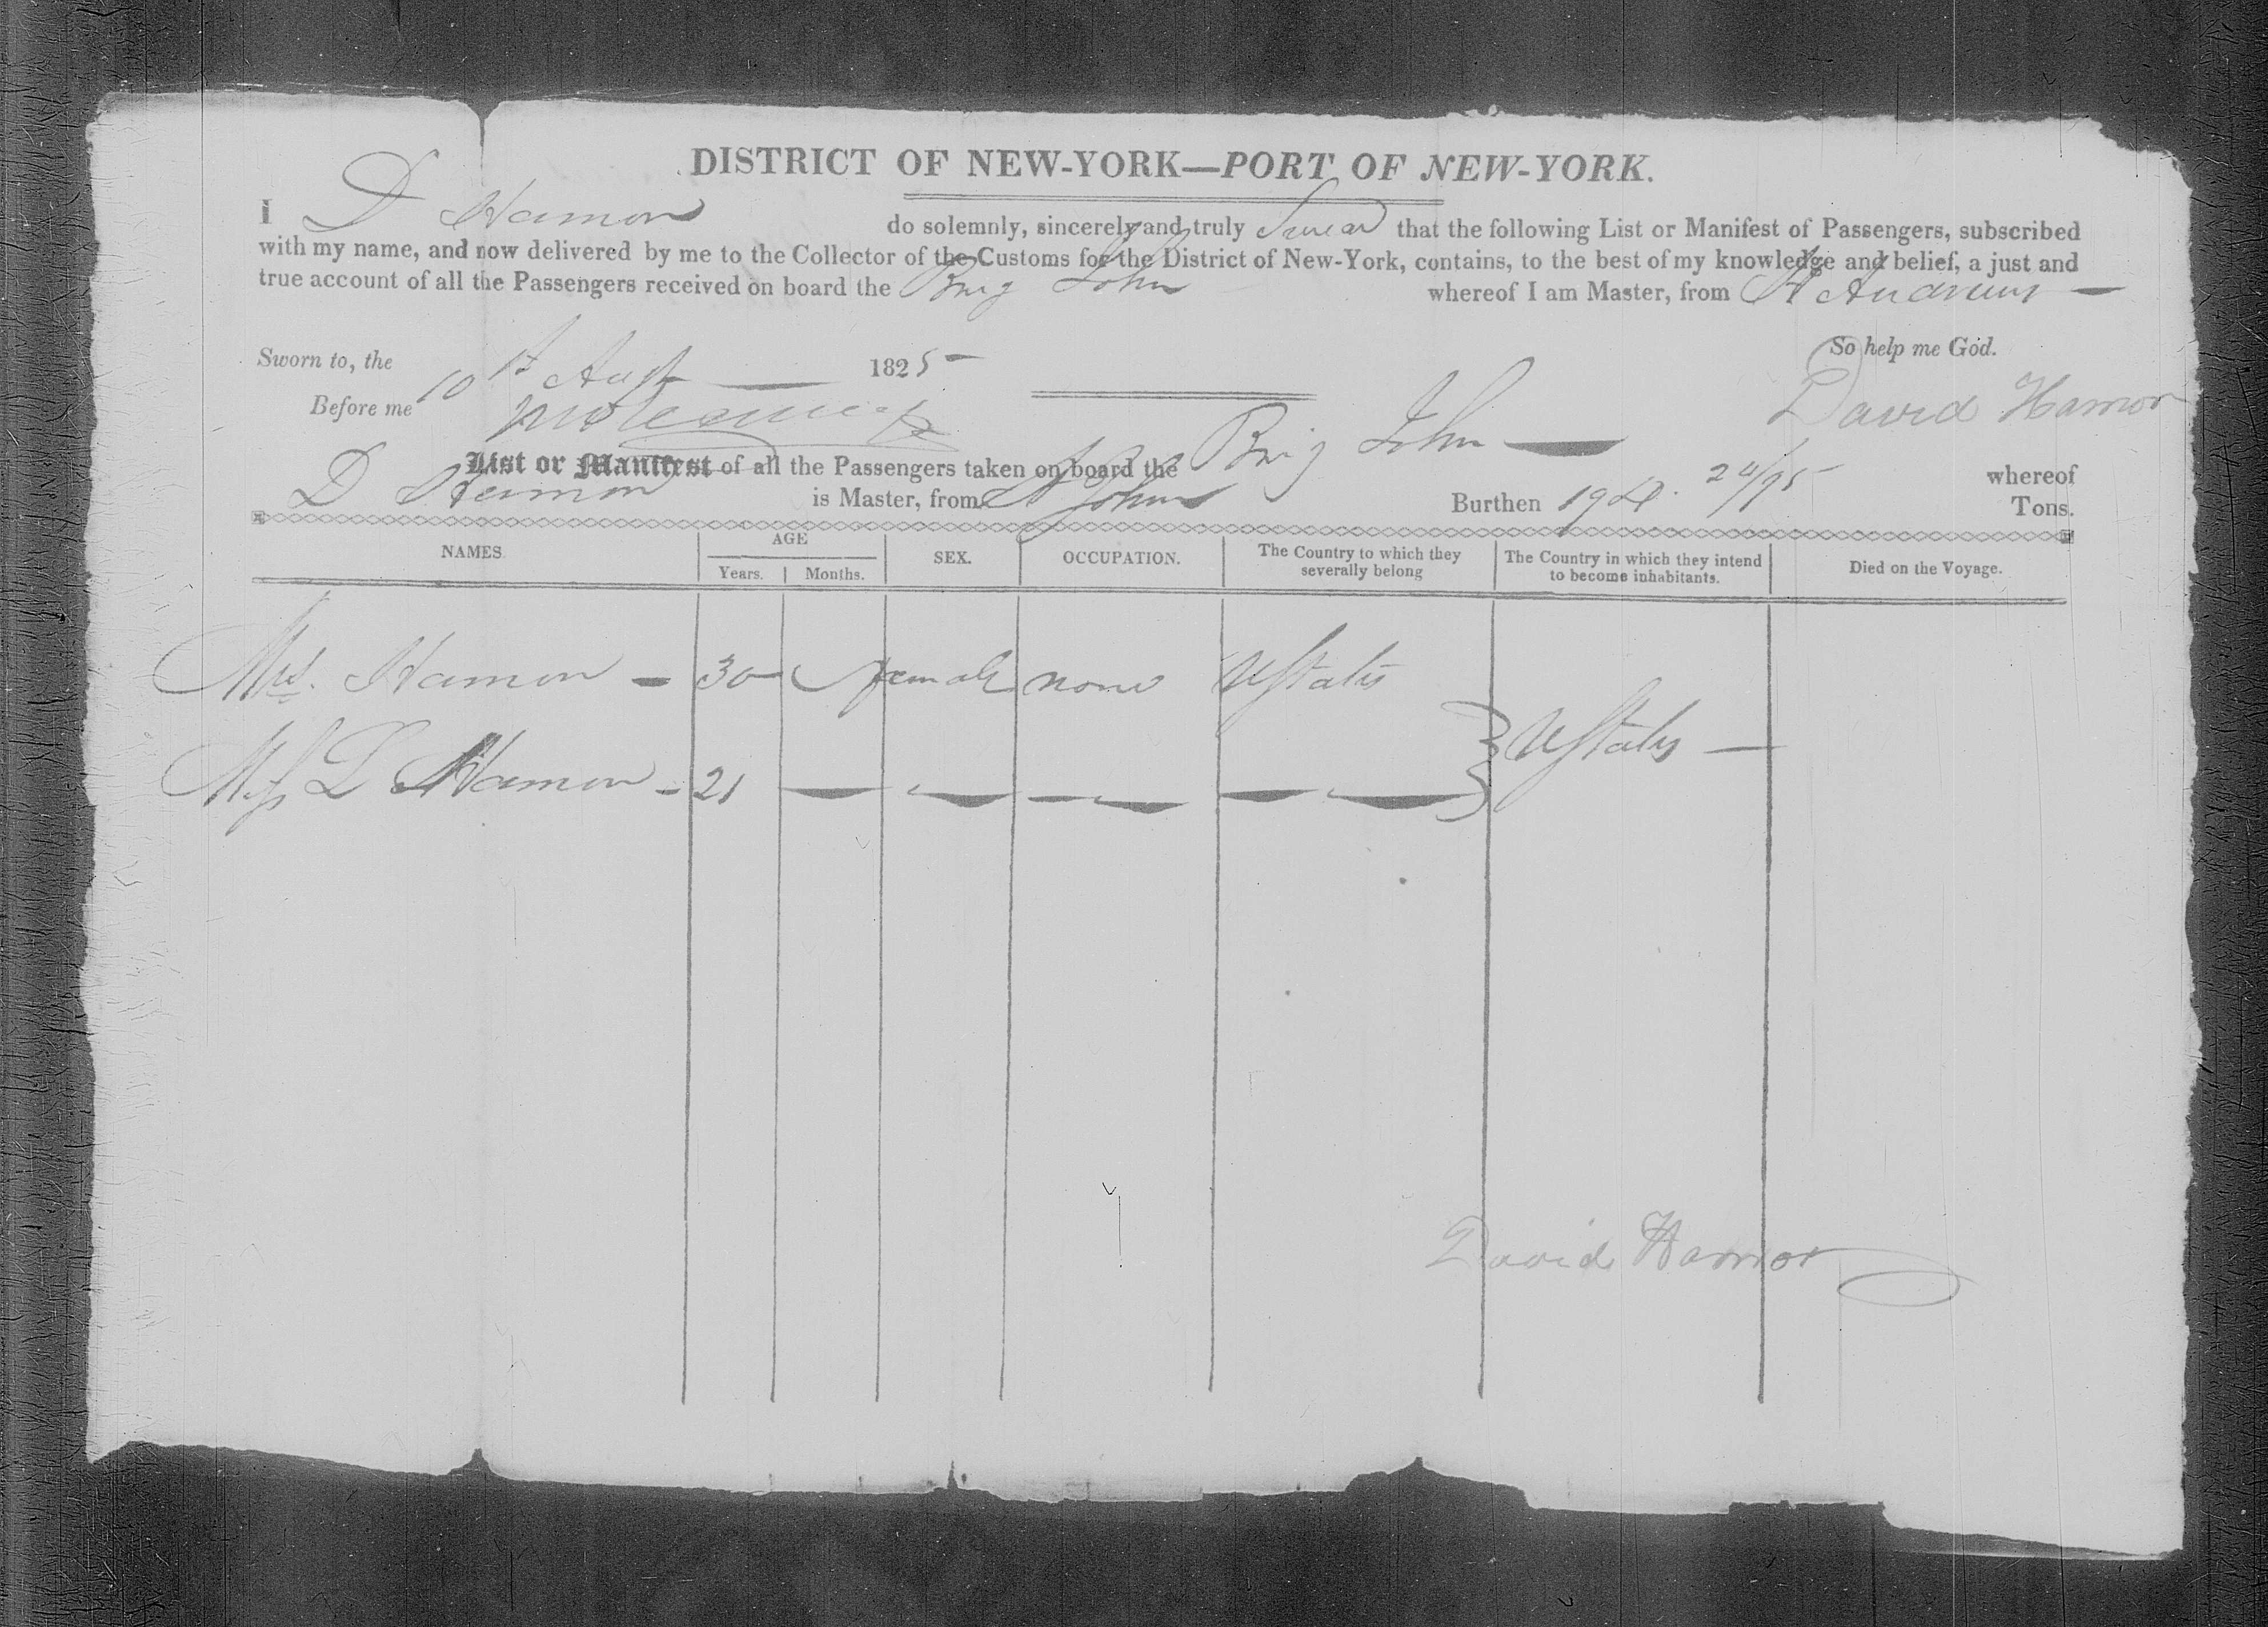 DISTRICT OF NEW-YORK—PORT OF NEW-YORK.
I D Hamor do solemnly, sincerely and truly Swear that the following List or Manifest of Passengers, subscribed
with my name, and now delivered by me to the Collector of the Customs for the District of New-York, contains, to the best of my knowledge and belief, a just and
true account of all the Passengers received on board the Brig John whereof I am Master, from St Andrews —
So help me God.
Sworn to, the 1st Augt — 1825 —
Before me
David Hamor
List or Manifest of all the Passengers taken on board the Brig John — whereof
D Hamor is Master, from St Johns Burthen 194 24/95 Tons.
NAMES. AGE SEX. OCCUPATION. The Country to which they severally belong The Country in which they intend to become inhabitants. Died on the Voyage.
Years. Months.
Mrs. Hamor — 30 female none UStates
UStates —
Miss L Hamor — 21 — — — —
David Hamor